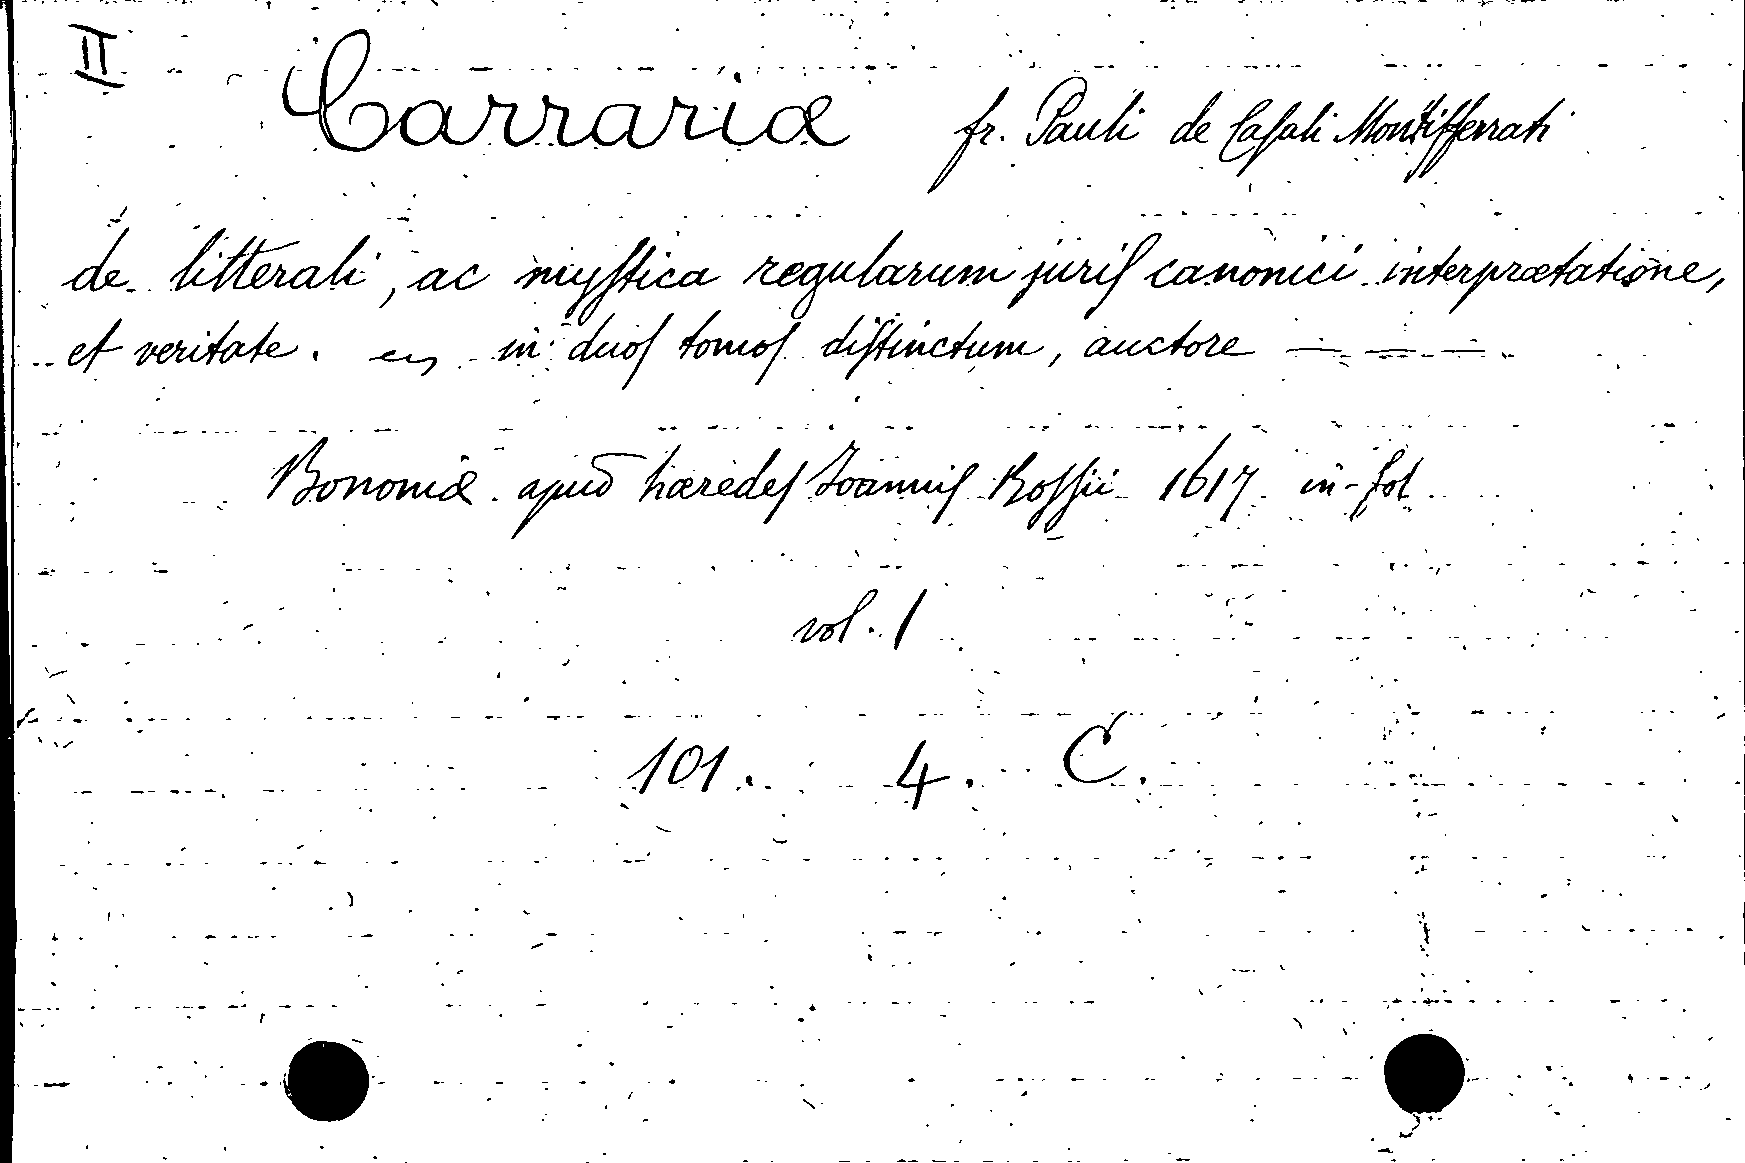 II
Carrariæ fr. Pauli de Casali Montisferrati
de litterali, ac mystica regularum juris canonici interprætatione,
et veritate. en in duos tomos distinctum, auctore — — —
Bononiæ apud hæredes Joannis Rossii 1617 in-fol
vol. 1
101. 4. C.